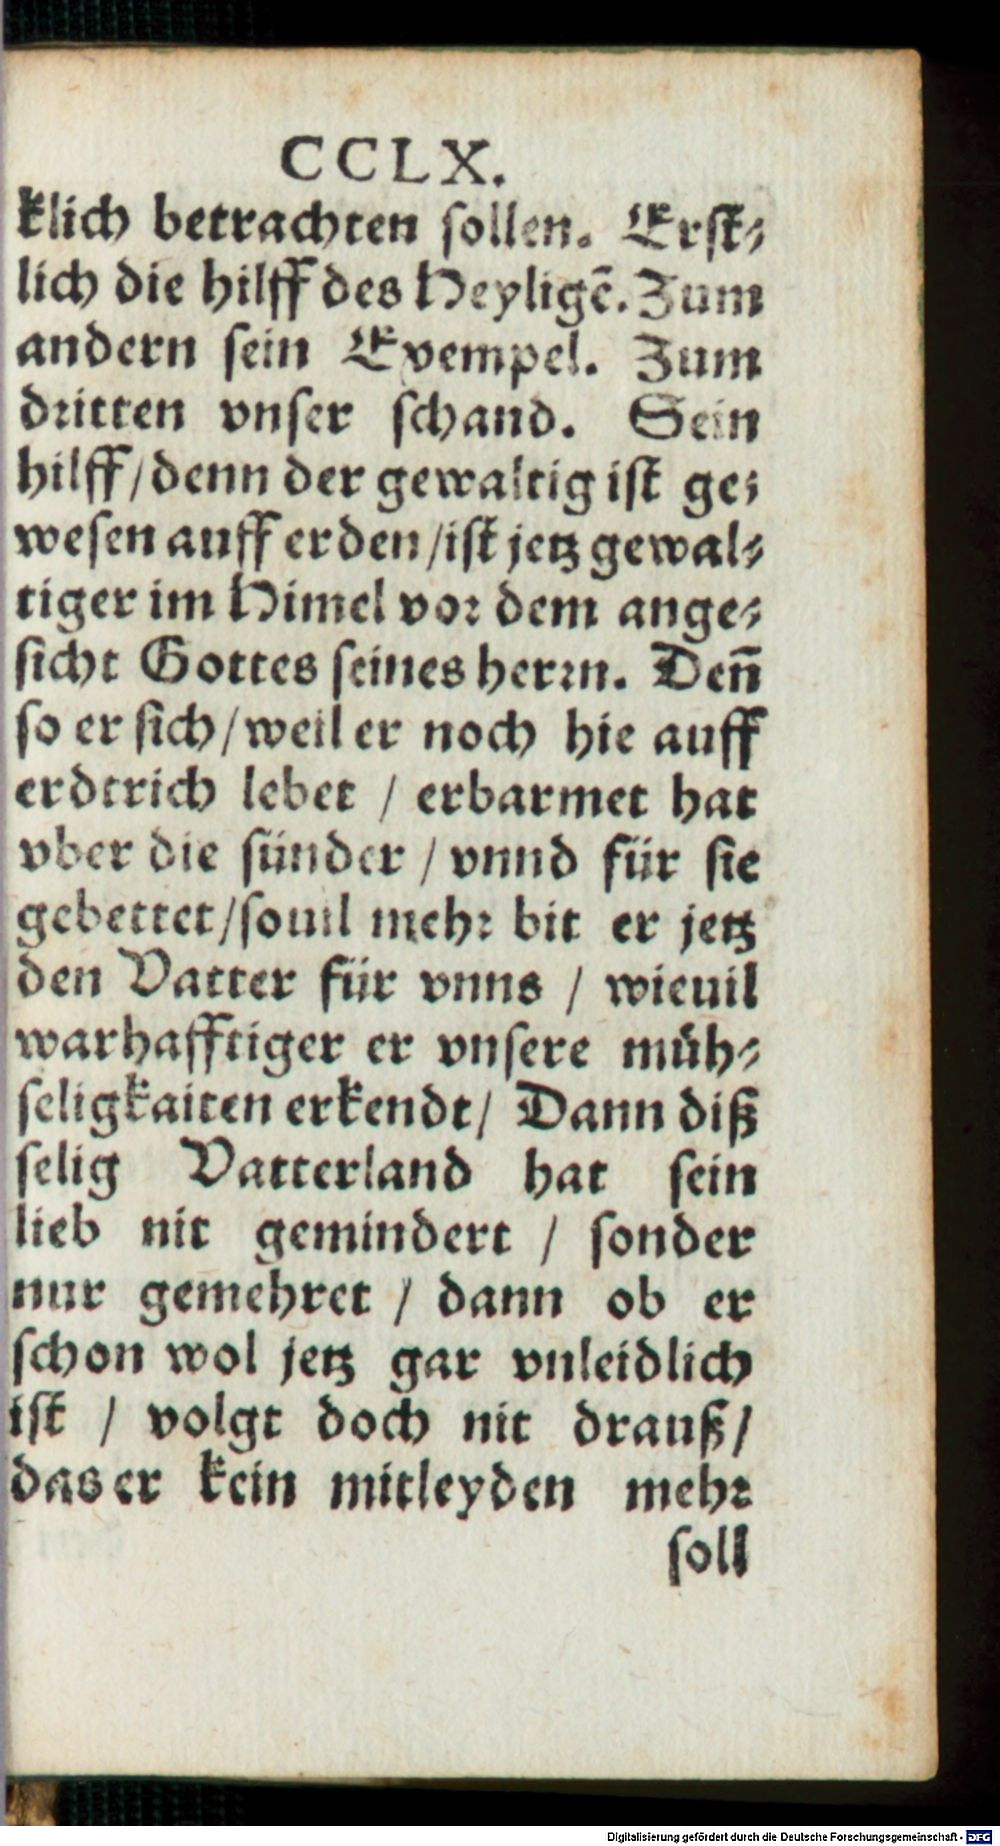 CCLX.
klich betrachten sollen. Erst⸗
lich die hilff des Heyligē. Zum
andern sein Exempel. Zum
dritten vnser schand. Sein
hilff/denn der gewaltig ist ge⸗
wesen auff erden/ist jetz gewal⸗
tiger im Himel vor dem ange⸗
sicht Gottes seines herrn. Deñ
so er sich/weil er noch hie auff
erdtrich lebet / erbarmet hat
vber die sünder / vnnd für sie
gebettet/souil mehr bit er jetz
den Vatter für vnns / wieuil
warhafftiger er vnsere müh⸗
seligkaiten erkendt/ Dann diß
selig Vatterland hat sein
lieb nit gemindert / sonder
nur gemehret / dann ob er
schon wol jetz gar vnleidlich
ist / volgt doch nit drauß/
das er kein mitleyden mehr
soll
Digitalisierung gefördert durch die Deutsche Forschungsgemeinschaft - DFG